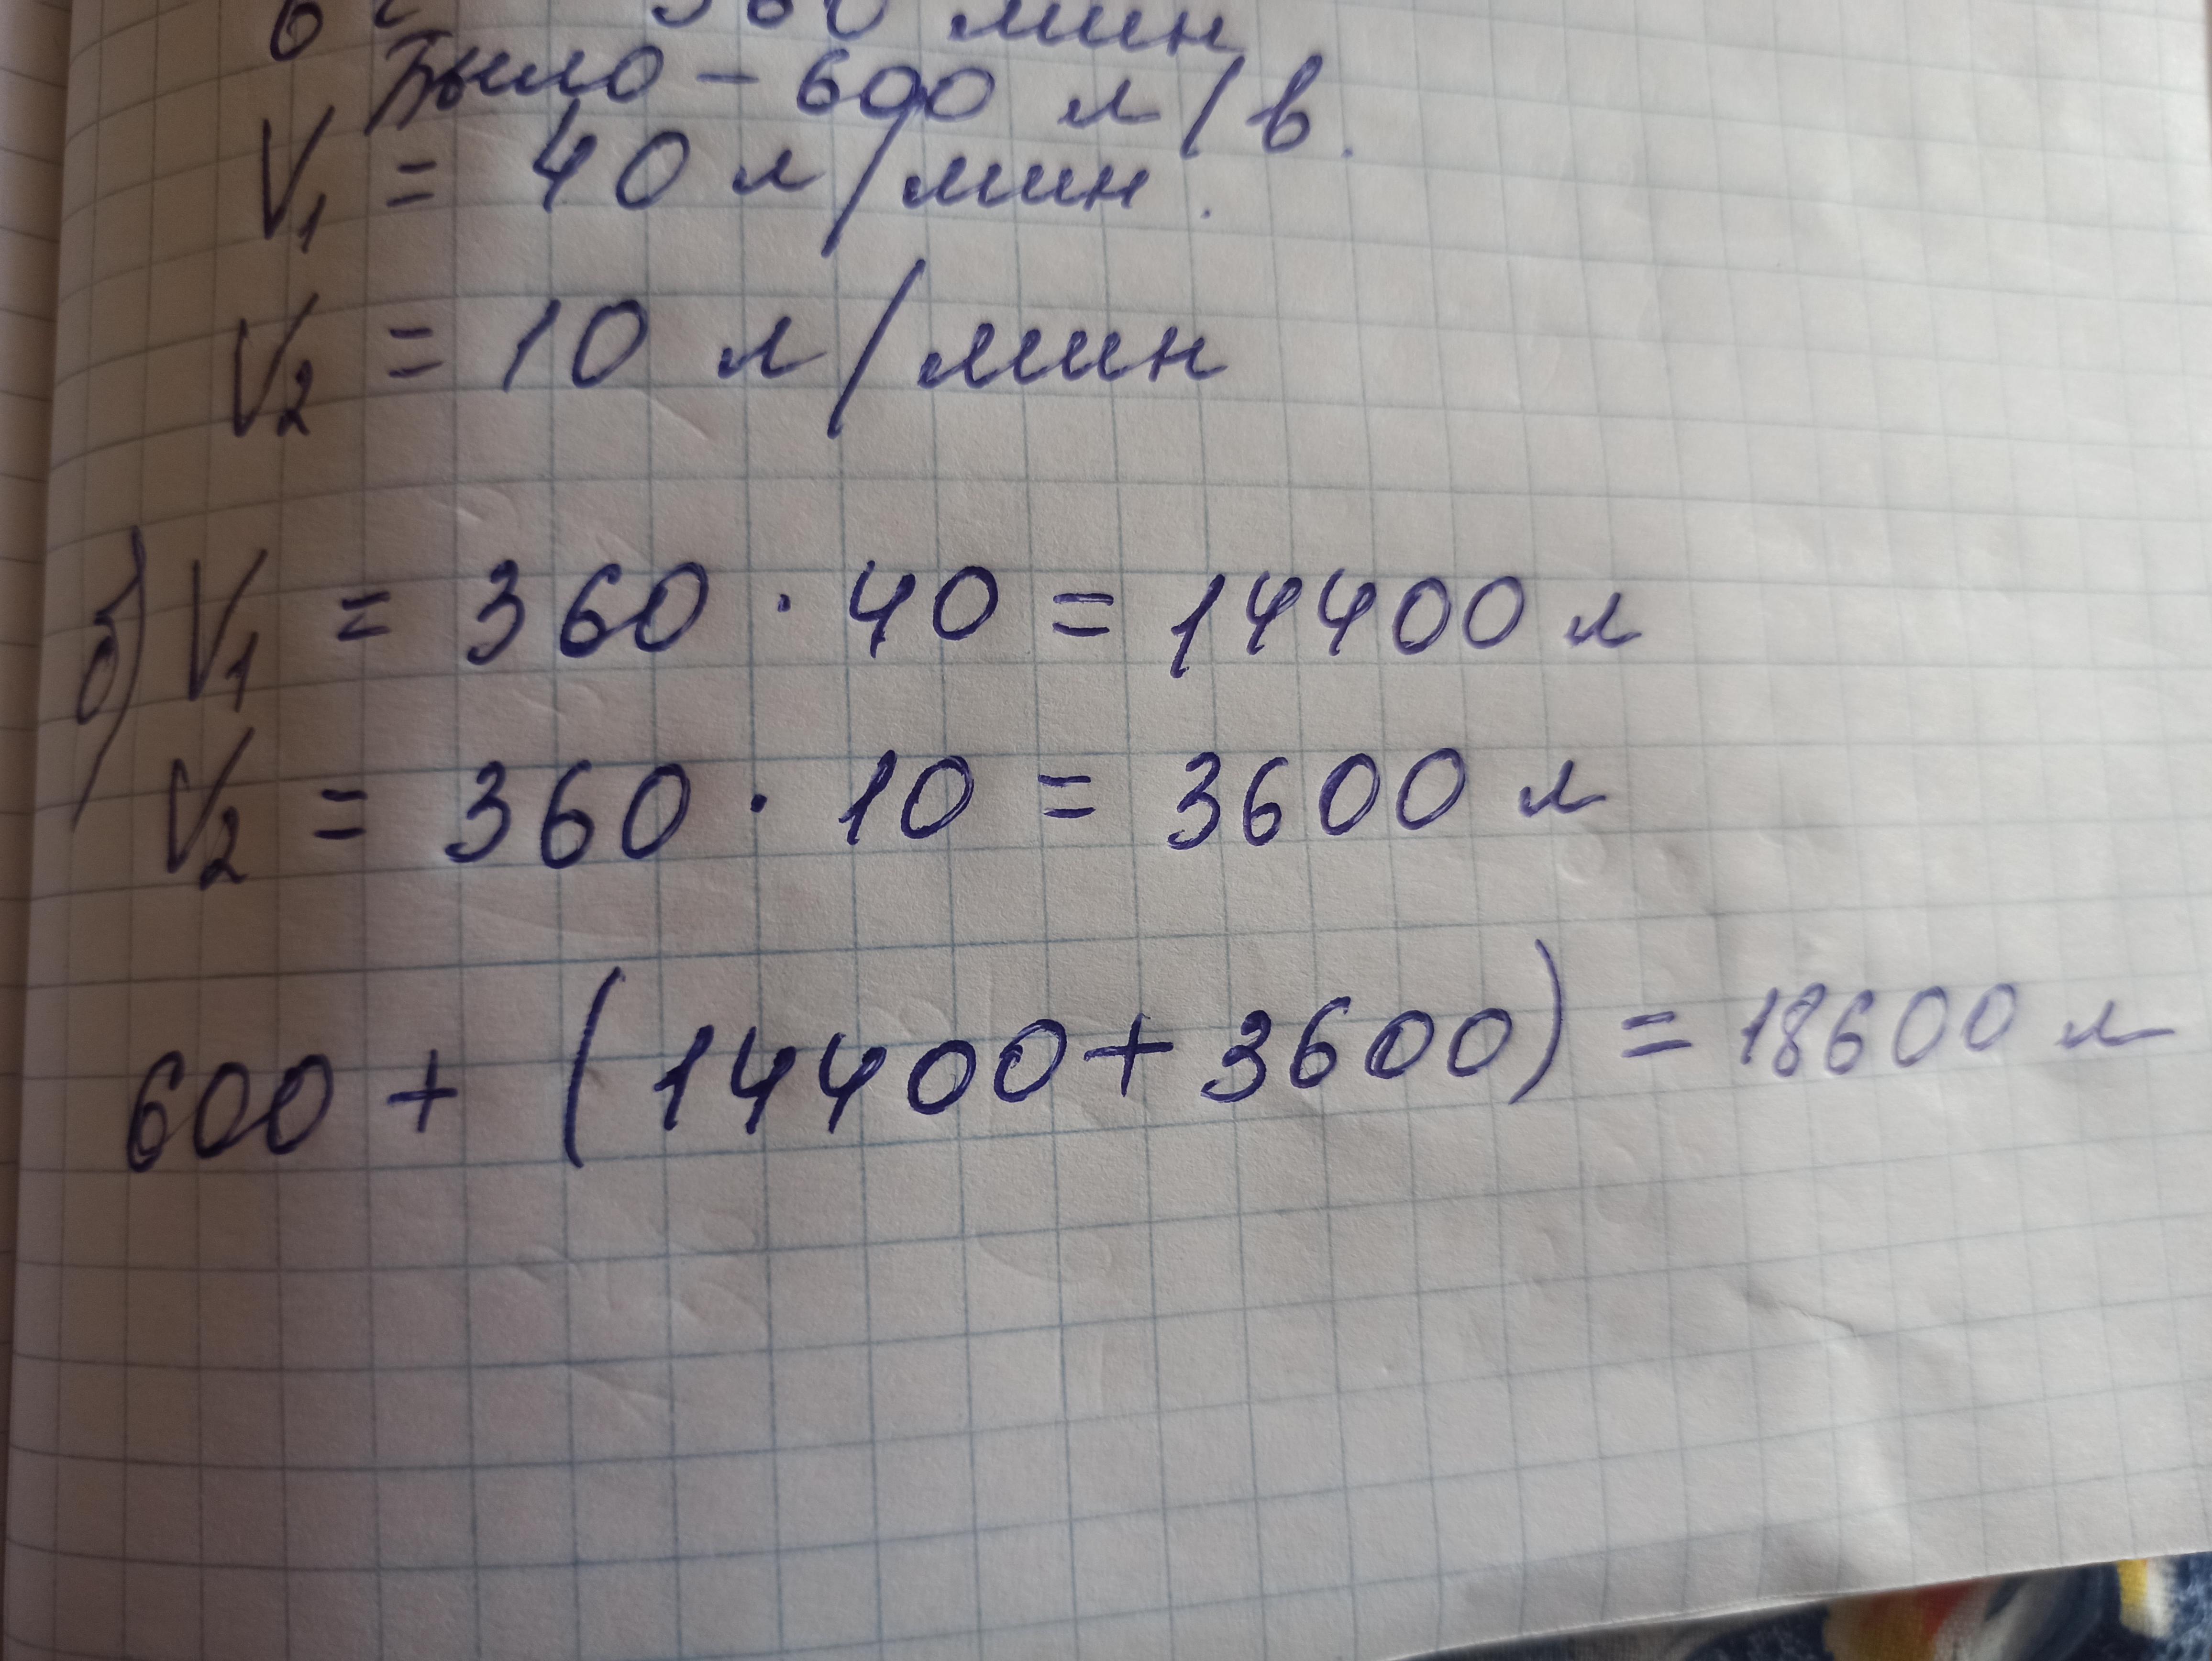 6 360 мин
Было - 600 л/в.
V1 = 40 л/мин.
V2 = 10 л/мин
б) V1 = 360 · 40 = 14400 л
V2 = 360 · 10 = 3600 л
600 + (14400 + 3600) = 18600 л